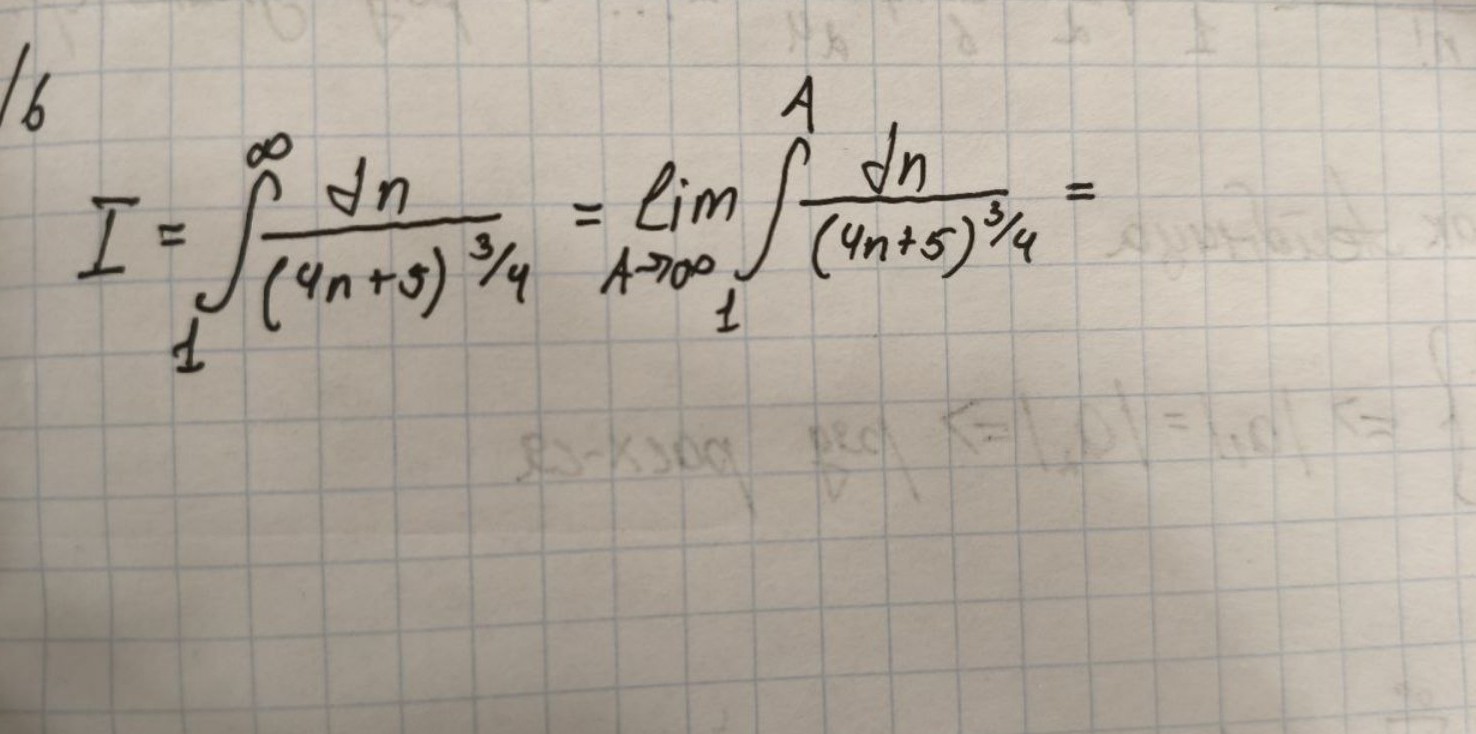 /б
I = ∫₁^∞ dn/(4n+5)^3/4 = lim A→∞ ∫₁^A dn/(4n+5)^3/4 =